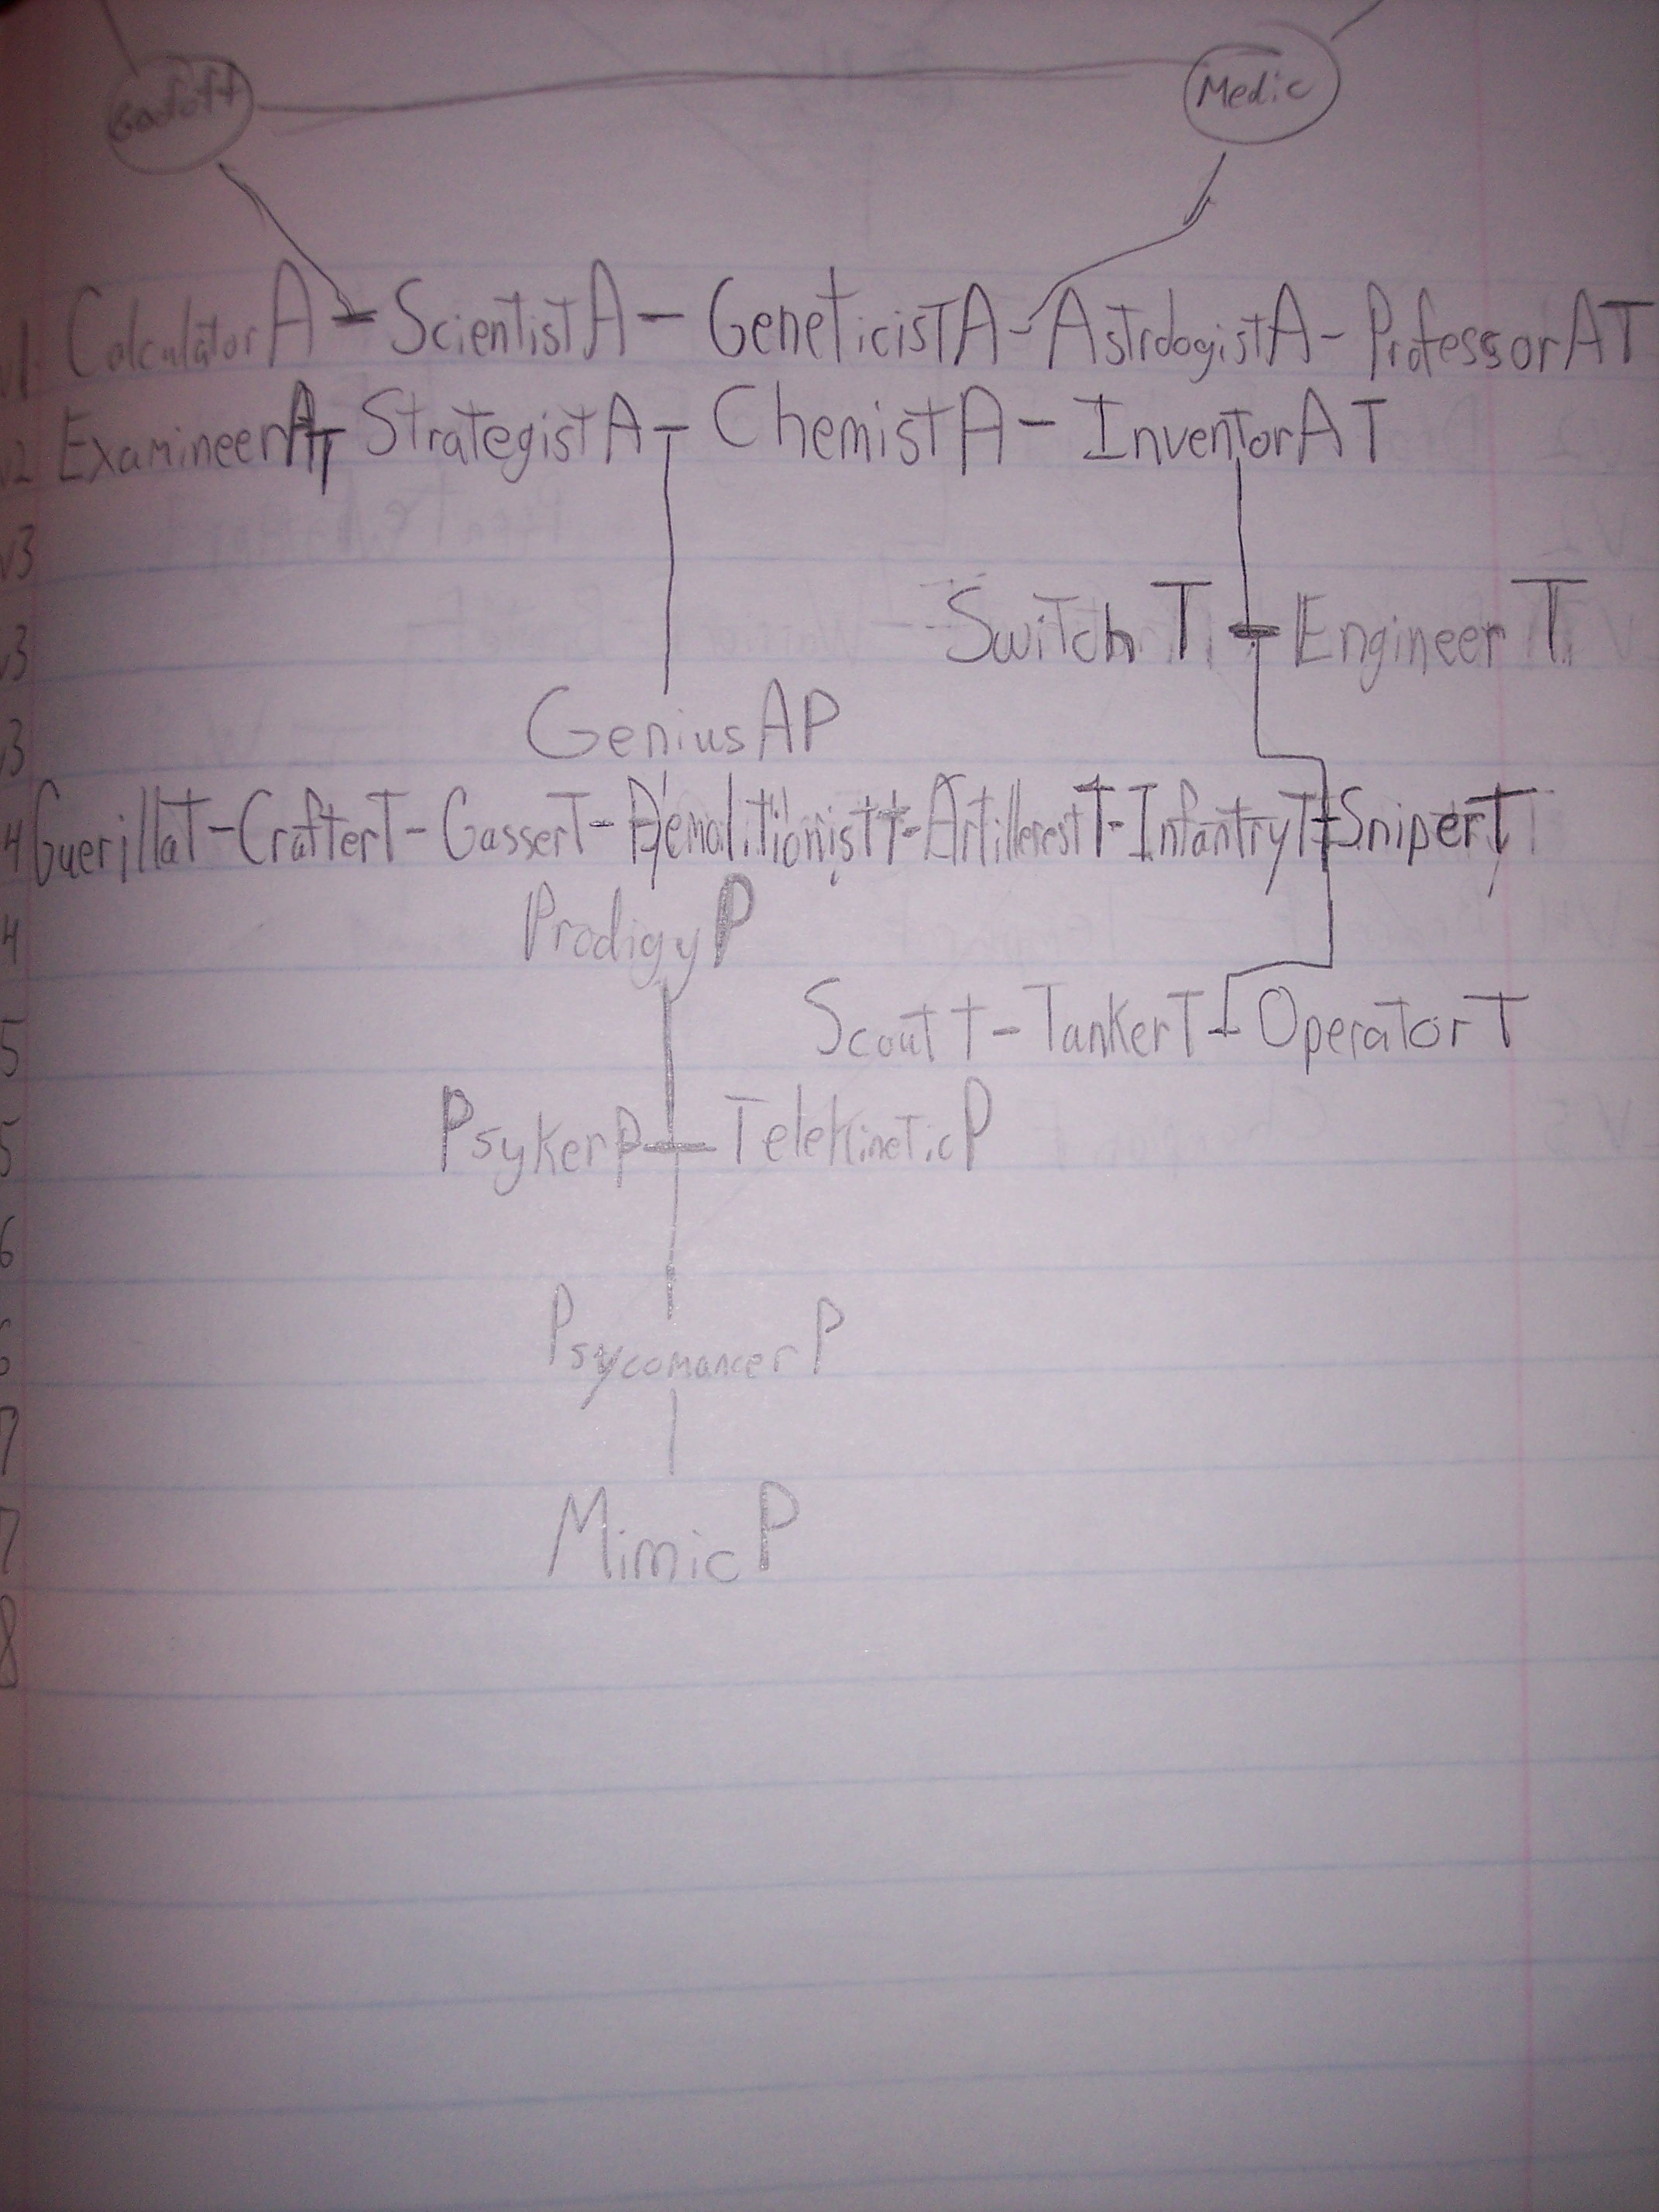 Medic
v1 Calculator A - Scientist A - Geneticist A - Astrologist A - Professor AT
v2 Examineer AT Strategist A - Chemist A - Inventor AT
v3
v3 Switch T - Engineer T
v3 Genius AP
4 Guerilla T - Crafter T - Gasser T - Demolitionist T - Artillerest T - Infantry T - Sniper T
4 Prodigy P
5 Scout T - Tanker T - Operator T
5 Psyker P - Telekinetic P
6
6 Psycomancer P
7
7 Mimic P
8